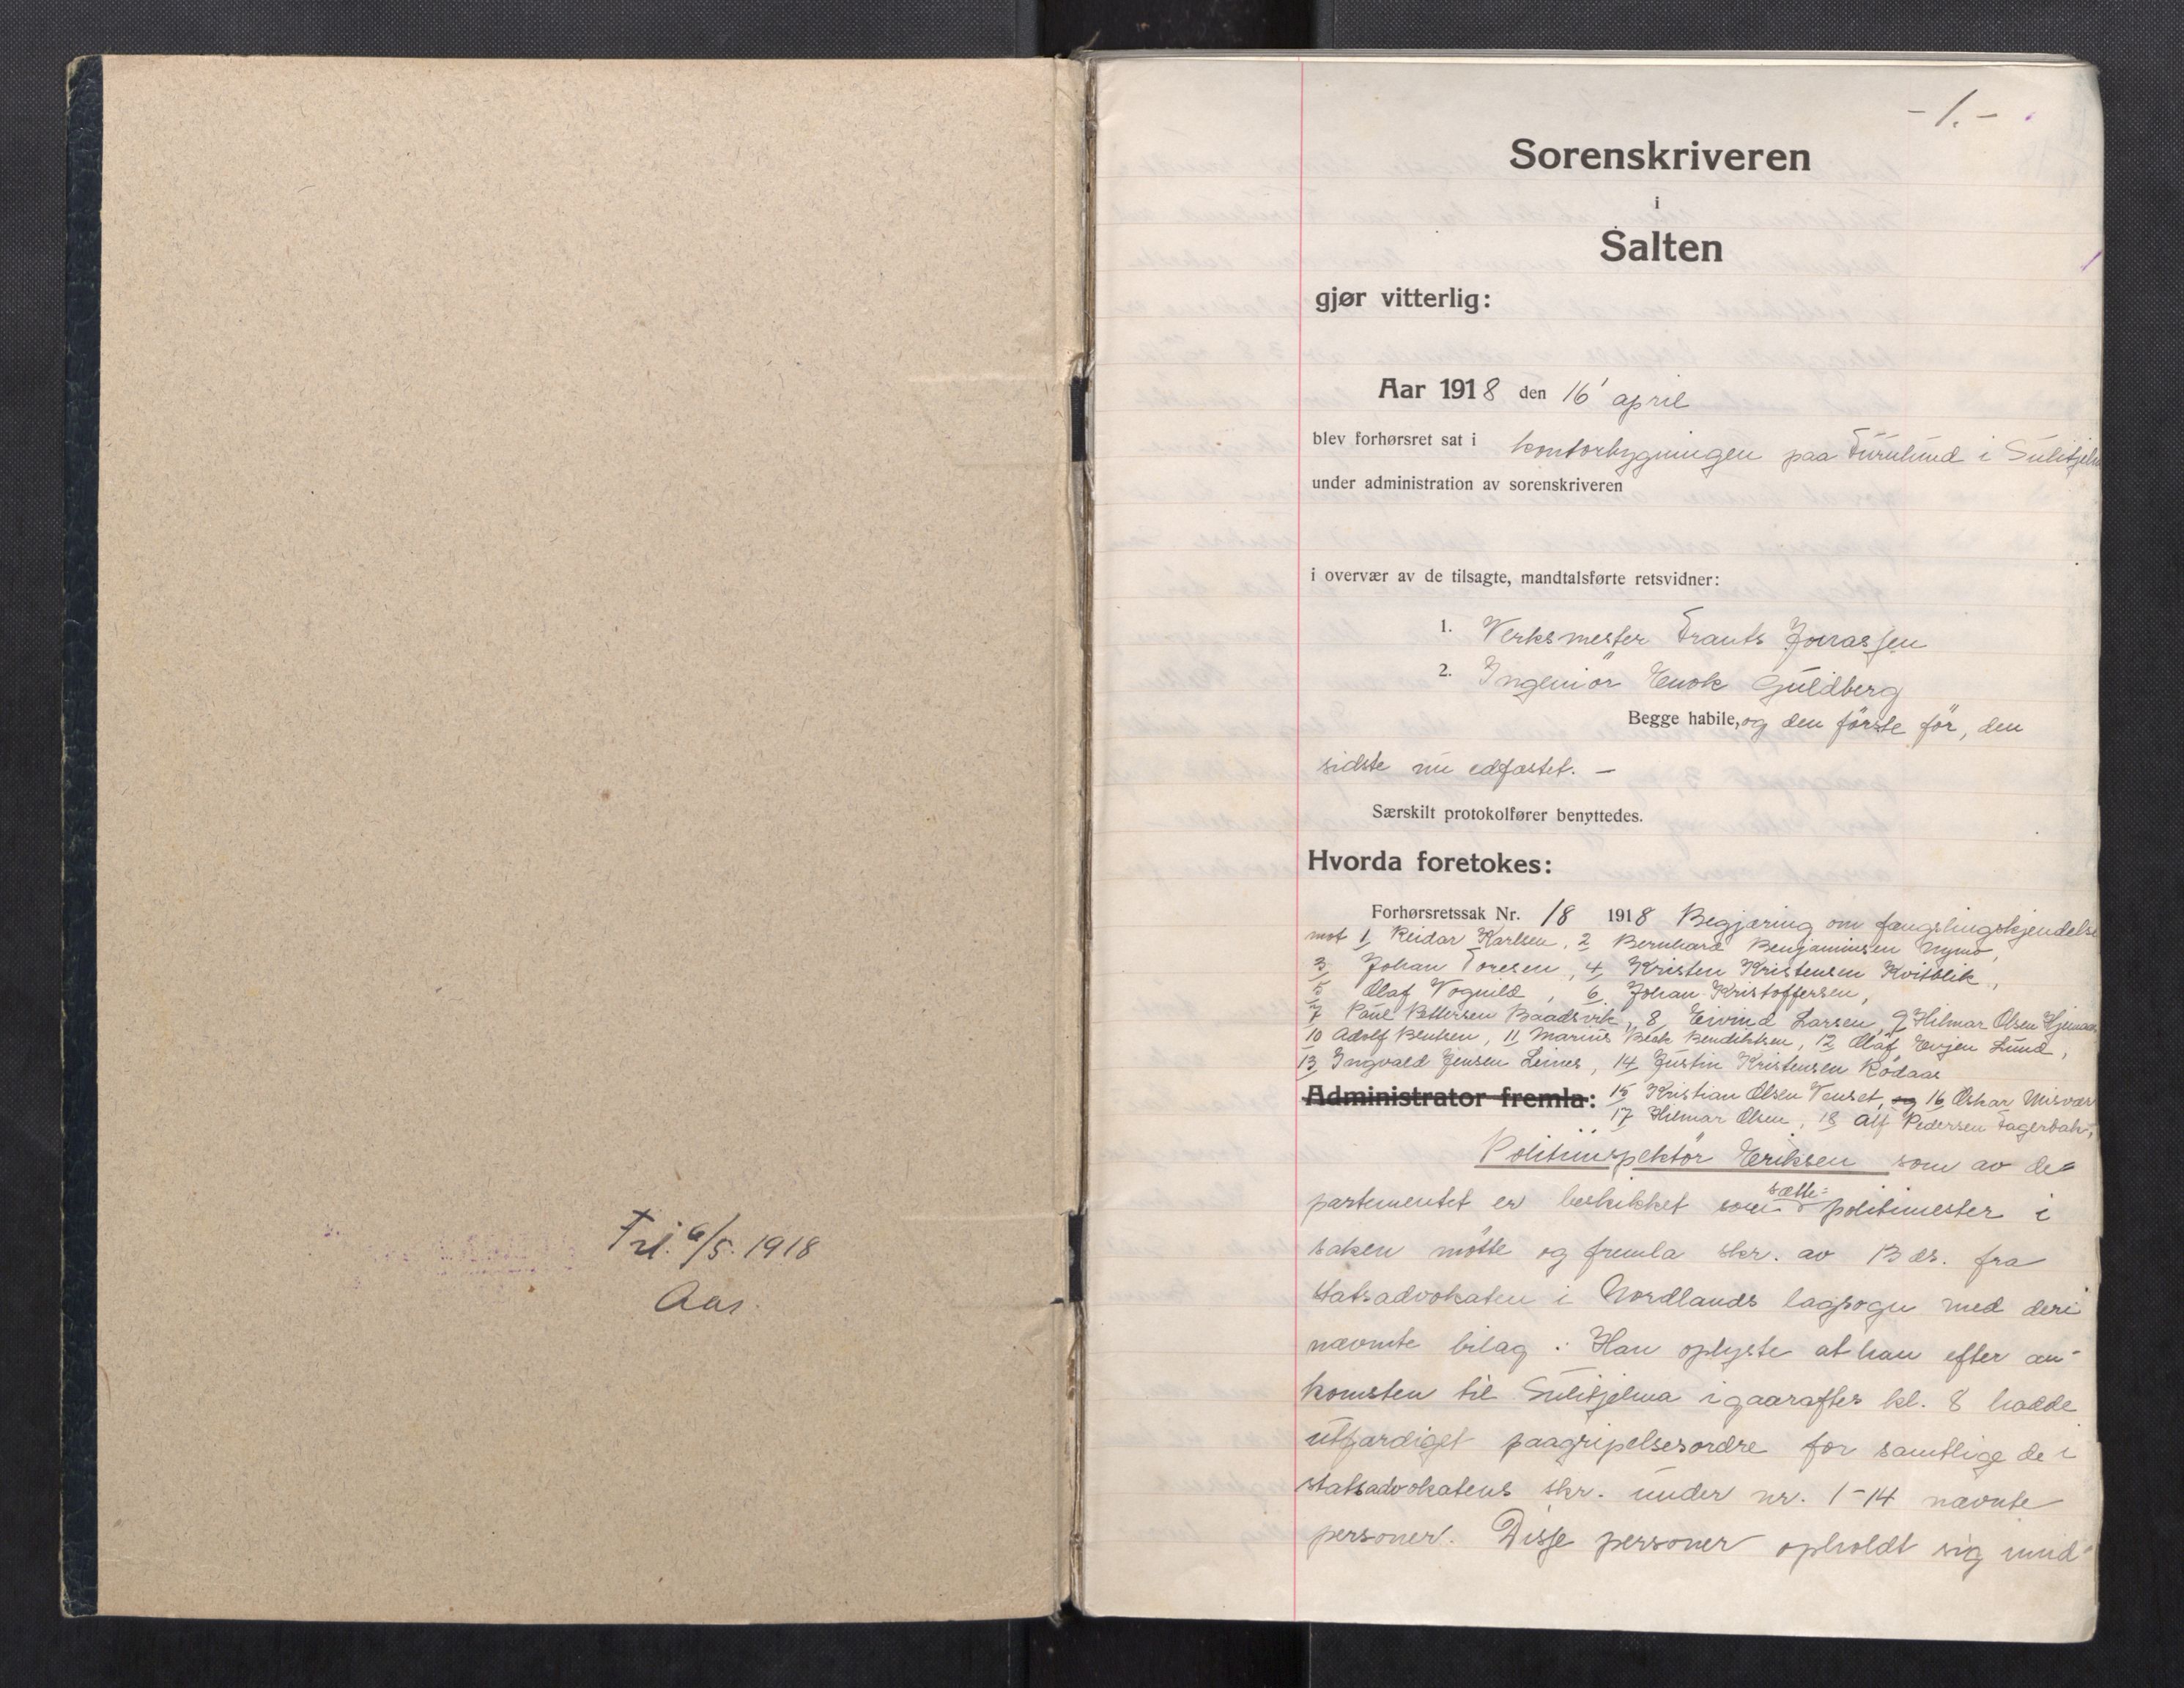 Frl. 6/5. 1918
Aas.
- 1. -
Sorenskriveren
i
Salten
gjør vitterlig:
Aar 1918 den 16' april
blev forhørsret sat i kontorbygningen paa Furulund i Sulitjelma
under administration av sorenskriveren
i overvær av de tilsagte, mandtalsførte retsvidner:
1. Verksmester Frants Jonassen
2. Ingeniör Enok Guldberg
Begge habile, og den förste för, den
sidste nu edfæstet. -
Særskilt protokolfører benyttedes.
Hvorda foretokes:
Forhørsretssak Nr. 18 1918 Begjæring om fængslingskjendelse
mot 1, Reidar Karlsen, 2 Bernhard Benjaminsen Nymo,
3, Johan Toresen, 4, Kristen Kristensen Kvitblik,
5 Olaf Vognild, 6, Johan Kristoffersen,
7 Paul Pettersen Baadsvik, 8, Eivind Larsen, 9 Hilmar Olsen
10 Adolf Bentsen, 11, Marius Bendiktsen, 12, Olaf Evjen Lund,
13, Ingvald Jensen Leines, 14, Justin Kristensen Rödaas
Administrator fremla: 15 Kristian Olsen Venset, og 16 Oskar Misvær
17, Hilmar Olsen, 18 Alf Pedersen Fagerbakk,
Politiinspektör Eriksen som av de-
partementet er beskikket som sætte-politimester i
saken mötte og fremla skr. av 13 ds. fra
statsadvokaten i Nordlands lagsogn med deri
nævnte bilag. Han oplyste at han efter an-
komsten til Sulitjelma igaaraftes kl. 8 hadde
utfærdiget paagripelsesordre for samtlige de i
statsadvokatens skr. under nr. 1-14 nævnte
personer. Disse personer opholdt sig